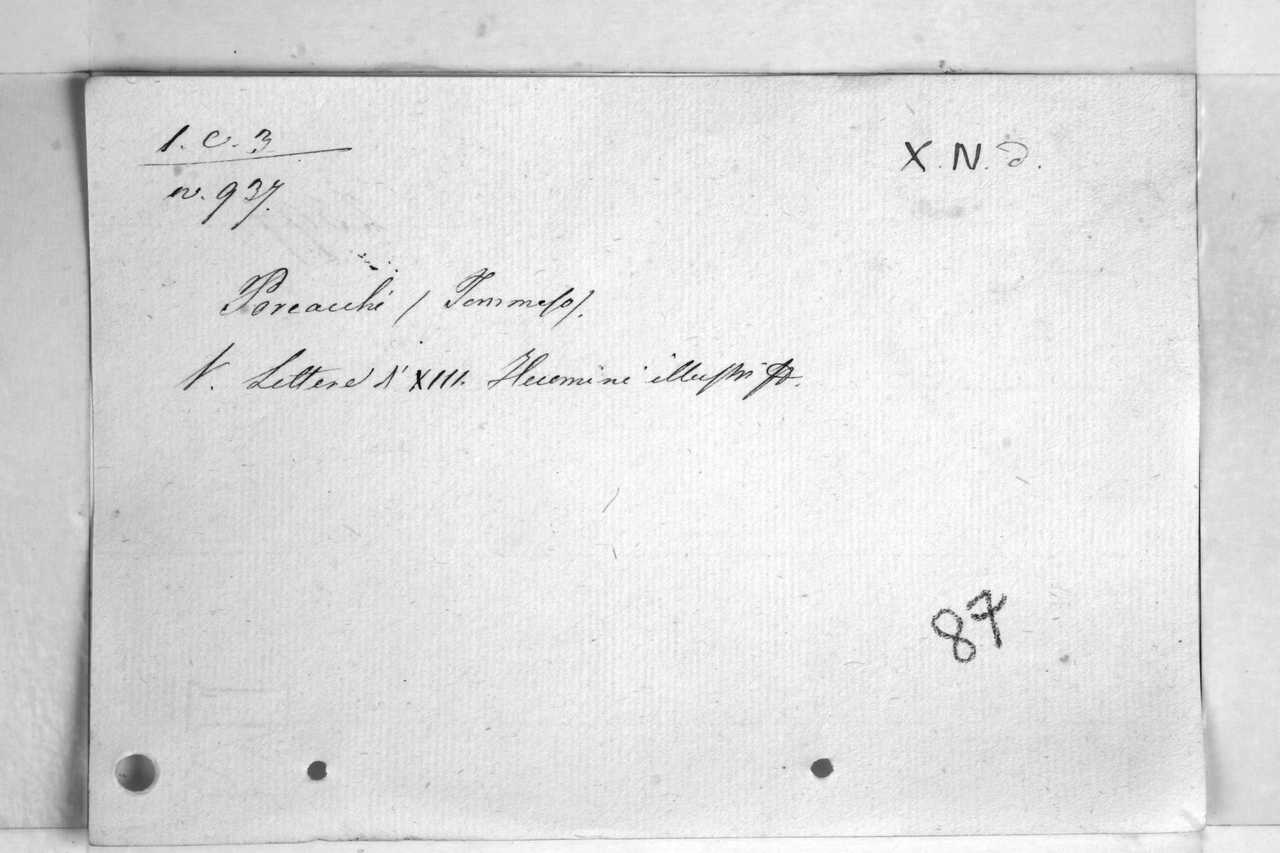 1. C. 3
n. 937.
X. N. d.
Porcacchi (Tommaso).
V. Lettere d' XIII. Huomini illustri
87